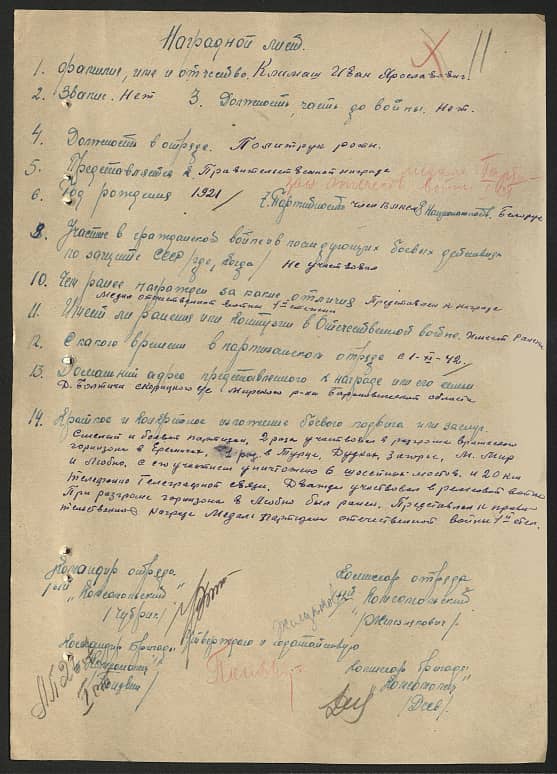 Наградной лист.
11
1. Фамилие, име и отчество. Климаш Иван Ярославович.
2. Звание. Нет 3. Должность, часть до войны. Нет.
4. Должность в отряде. Политрук роты.
5. Представляется к. Правительственной награде
6. Год рождения 1921/ 7. Партийность член ВЛКСМ 8 Национальность. Белорус
9. Участие в гражданской войне и в последующих боевых действиях
по защите СССР /где, когда/ Не участвовал
10. Чем ранее награжден за какие отличия Представлен к награде
Медаль отечественной войны 1й степени
11. Имеет ли ранения или контузии в Отечественной войне. Имеет ранен
12. С какого времени в партизанском отряде с 1-VI-42/
13. Домашний адрес представленного к награде или его семьи
Д. с/с Мирского р-на Барановичской области
14. Краткое и конкретное изложение боевого подвига или заслуг.
Смелый и боевой партизан, 2 раза участвовал в разгроме вражеского
гарнизона в Еремичах, 1 раз, в Турце, М. Мир
и Любно. С его участием уничтожено 6 шоссейных мостов. и 20 км
телефонно телеграфной связи. Дважды участвовал в рельсовой войне
При разгроме гарнизона в Любно был ранен. Представлен к прави
тельственной награде Медаль Партизана отечественной войны 1й степ.
Командир отряда
"Комсомольский
/Чубрич/
Комиссар отряда
"Комсомольский
Командир бригады
Утверждаю и ходатайствую
"Комсомолец"
Комиссар бригады
"Комсомолец"
/Деев/